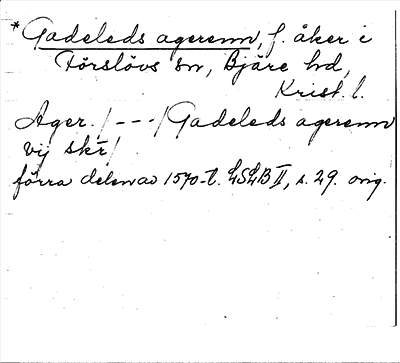 *Gadeleds agerenn, f. åker i
Förslövs sn, Bjäre hd,
Krist. l.
Ager. / --- / Gadeleds agerenn
vij skr /
förra delen av 1570-t. LSLB II, s. 29. orig.